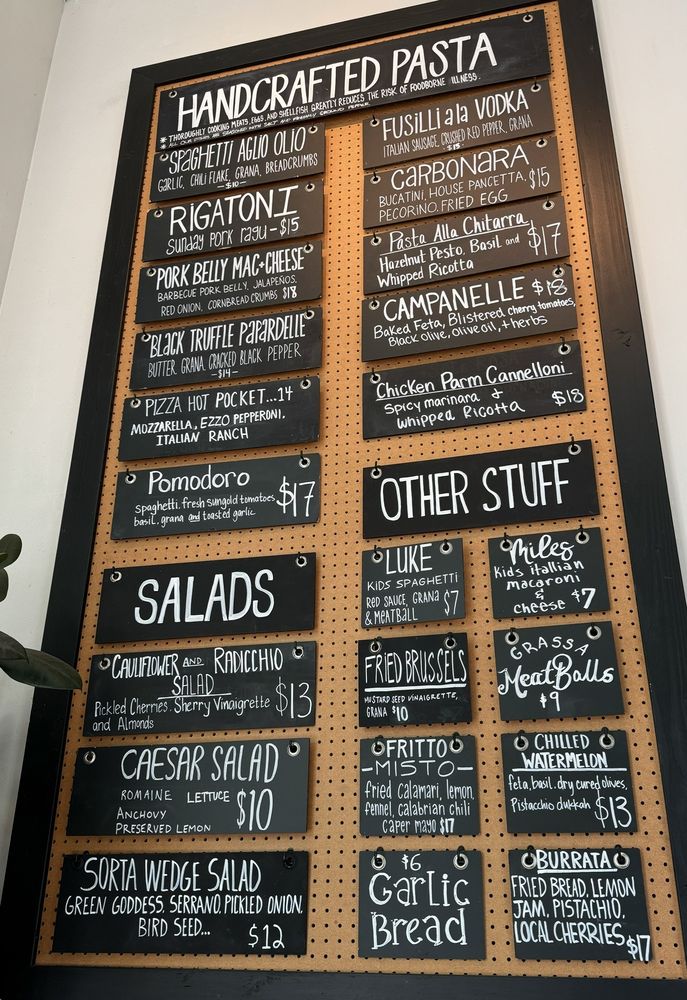 HANDCRAFTED PASTA
* THOROUGHLY COOKING MEATS, EGGS, AND SHELLFISH GREATLY REDUCES THE RISK OF FOODBORNE ILLNESS.
* ALL OUR ITEMS ARE SEASONED WITH SALT AND FRESHLY GROUND PEPPER
SPAGHETTI AGLIO OLIO
GARLIC, CHILI FLAKE, GRANA, BREADCRUMBS
-$10-
RIGATONI
Sunday Pork ragu - $15
PORK BELLY MAC+CHEESE
BARBECUE PORK BELLY, JALAPEÑOS,
RED ONION, CORNBREAD CRUMBS $18
BLACK TRUFFLE PAPARDELLE
BUTTER, GRANA, CRACKED BLACK PEPPER
-$14-
PIZZA HOT POCKET...14
MOZZARELLA, EZZO PEPPERONI,
ITALIAN RANCH
Pomodoro
spaghetti, fresh sungold tomatoes,
basil, grana and toasted garlic
$17
FUSILLI ala VODKA
ITALIAN SAUSAGE, CRUSHED RED PEPPER, GRANA
$15
CARBONARA
BUCATINI, HOUSE PANCETTA,
PECORINO, FRIED EGG
$15
Pasta Alla Chitarra
Hazelnut Pesto, Basil and
Whipped Ricotta
$17
CAMPANELLE $18
Baked Feta, Blistered cherry tomatoes,
Black olive, olive oil, + herbs
Chicken Parm Cannelloni
Spicy marinara &
whipped Ricotta
$18
SALADS
CAULIFLOWER AND RADICCHIO
SALAD
Pickled Cherries, Sherry Vinaigrette
and Almonds
$13
CAESAR SALAD
ROMAINE LETTUCE
ANCHOVY
PRESERVED LEMON
$10
SORTA WEDGE SALAD
GREEN GODDESS, SERRANO, PICKLED ONION,
BIRD SEED...
$12
OTHER STUFF
LUKE
KIDS SPAGHETTI
RED SAUCE, GRANA
& MEATBALL
$7
Miles
kids italian
macaroni
&
cheese $7
FRIED BRUSSELS
MUSTARD SEED VINAIGRETTE,
GRANA $10
GRASSA
MeatBalls
$9
FRITTO
-MISTO-
fried calamari, lemon,
fennel, calabrian chili
caper mayo $17
CHILLED
WATERMELON
feta, basil, dry cured olives,
Pistacchio dukkah
$13
$6
Garlic
Bread
BURRATA
FRIED BREAD, LEMON
JAM, PISTACHIO,
LOCAL CHERRIES $17